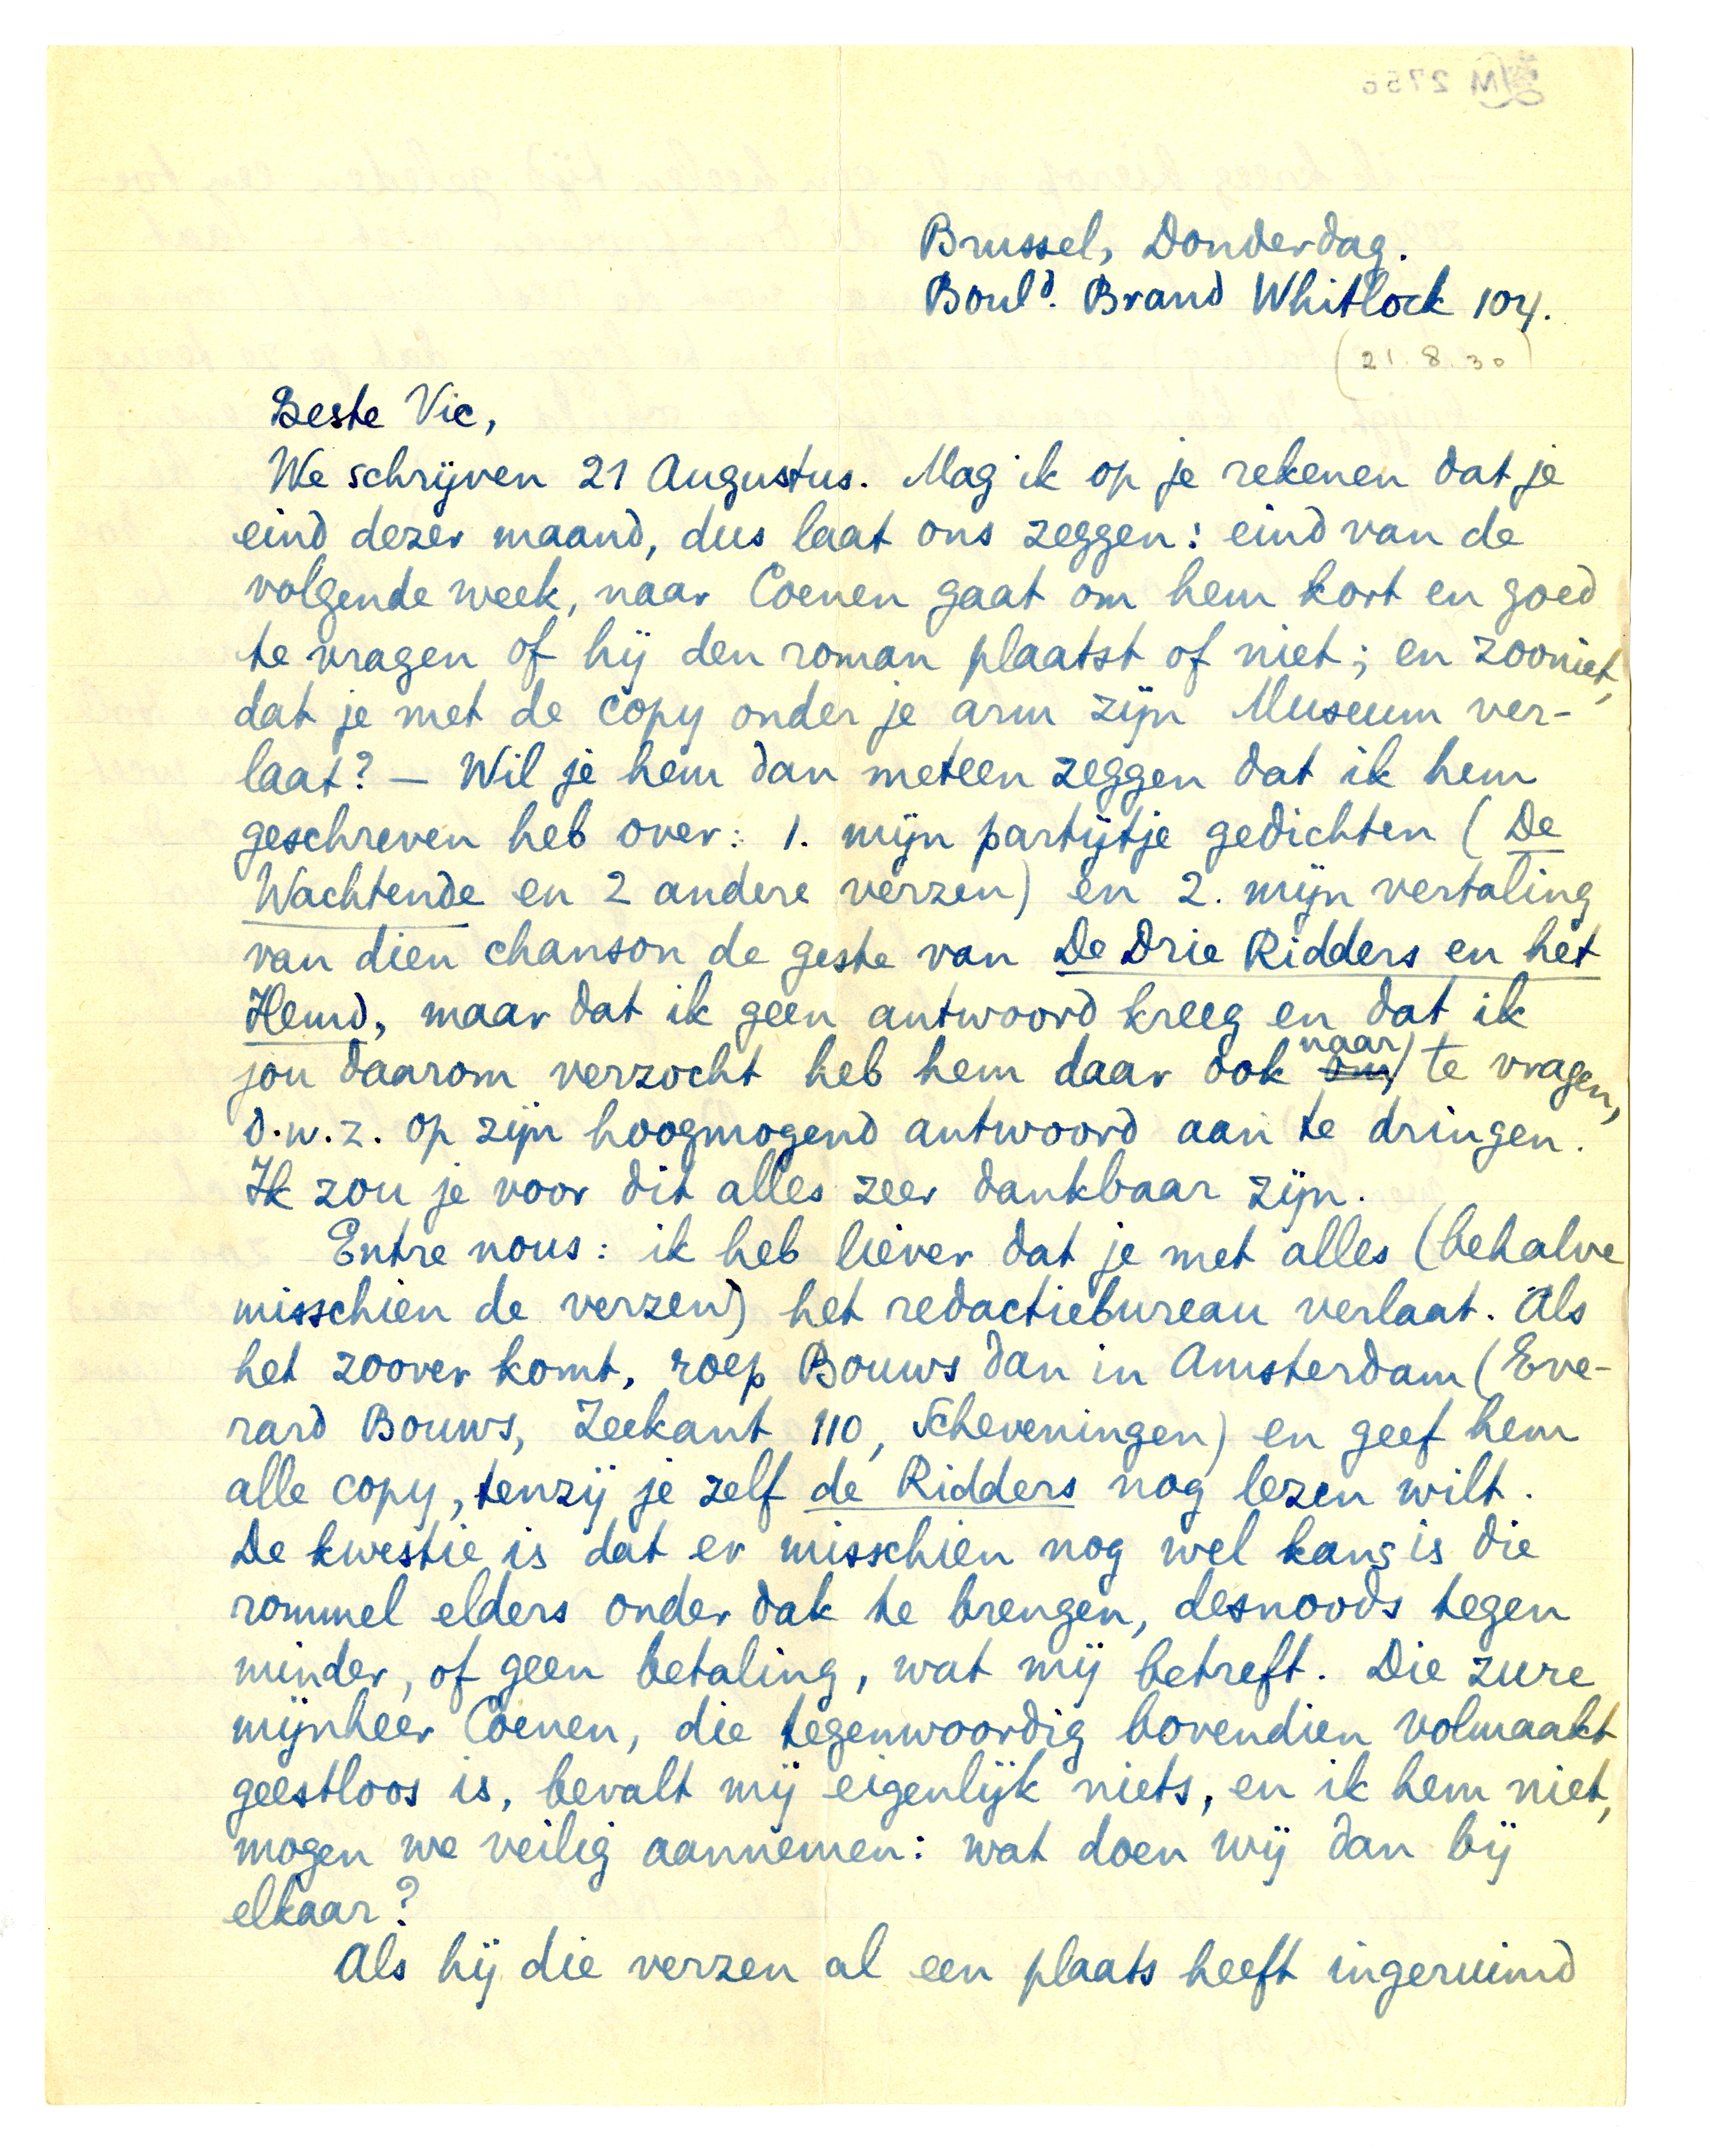 Brussel, Donderdag.
Bould. Brand Whitlock 104.
(21.8.30)
Beste Vic,
We schrijven 21 Augustus. Mag ik op je rekenen dat je
eind dezer maand, dus laat ons zeggen: eind van de
volgende week, naar Coenen gaat om hem kort en goed
te vragen of hij den roman plaatst of niet; en zooniet,
dat je met de copy onder je arm zijn Museum ver-
laat? — Wil je hem dan meteen zeggen dat ik hem
geschreven heb over: 1. mijn partijtje gedichten (De
Wachtende en 2 andere verzen) en 2. mijn vertaling
van dien chanson de geste van De Drie Ridders en het
Hemd, maar dat ik geen antwoord kreeg en dat ik
jou daarom verzocht heb hem daar ook om naar te vragen,
d.w.z. op zijn hoogmogend antwoord aan te dringen.
Ik zou je voor dit alles zeer dankbaar zijn.
Entre nous: ik heb liever dat je met alles (behalve
misschien de verzen) het redactiebureau verlaat. Als
het zoover komt, roep Bouws dan in Amsterdam (Eve-
rard Bouws, Zeekant 110, Scheveningen) en geef hem
alle copy, tenzij je zelf de Ridders nog lezen wilt.
De kwestie is dat er misschien nog wel kans is die
rommel elders onder dak te brengen, desnoods tegen
minder, of geen betaling, wat mij betreft. Die zure
mijnheer Coenen, die tegenwoordig bovendien volmaakt
geestloos is, bevalt mij eigenlijk niets, en ik hem niet,
mogen we veilig aannemen: wat doen wij dan bij
elkaar?
Als hij die verzen al een plaats heeft ingeruimd